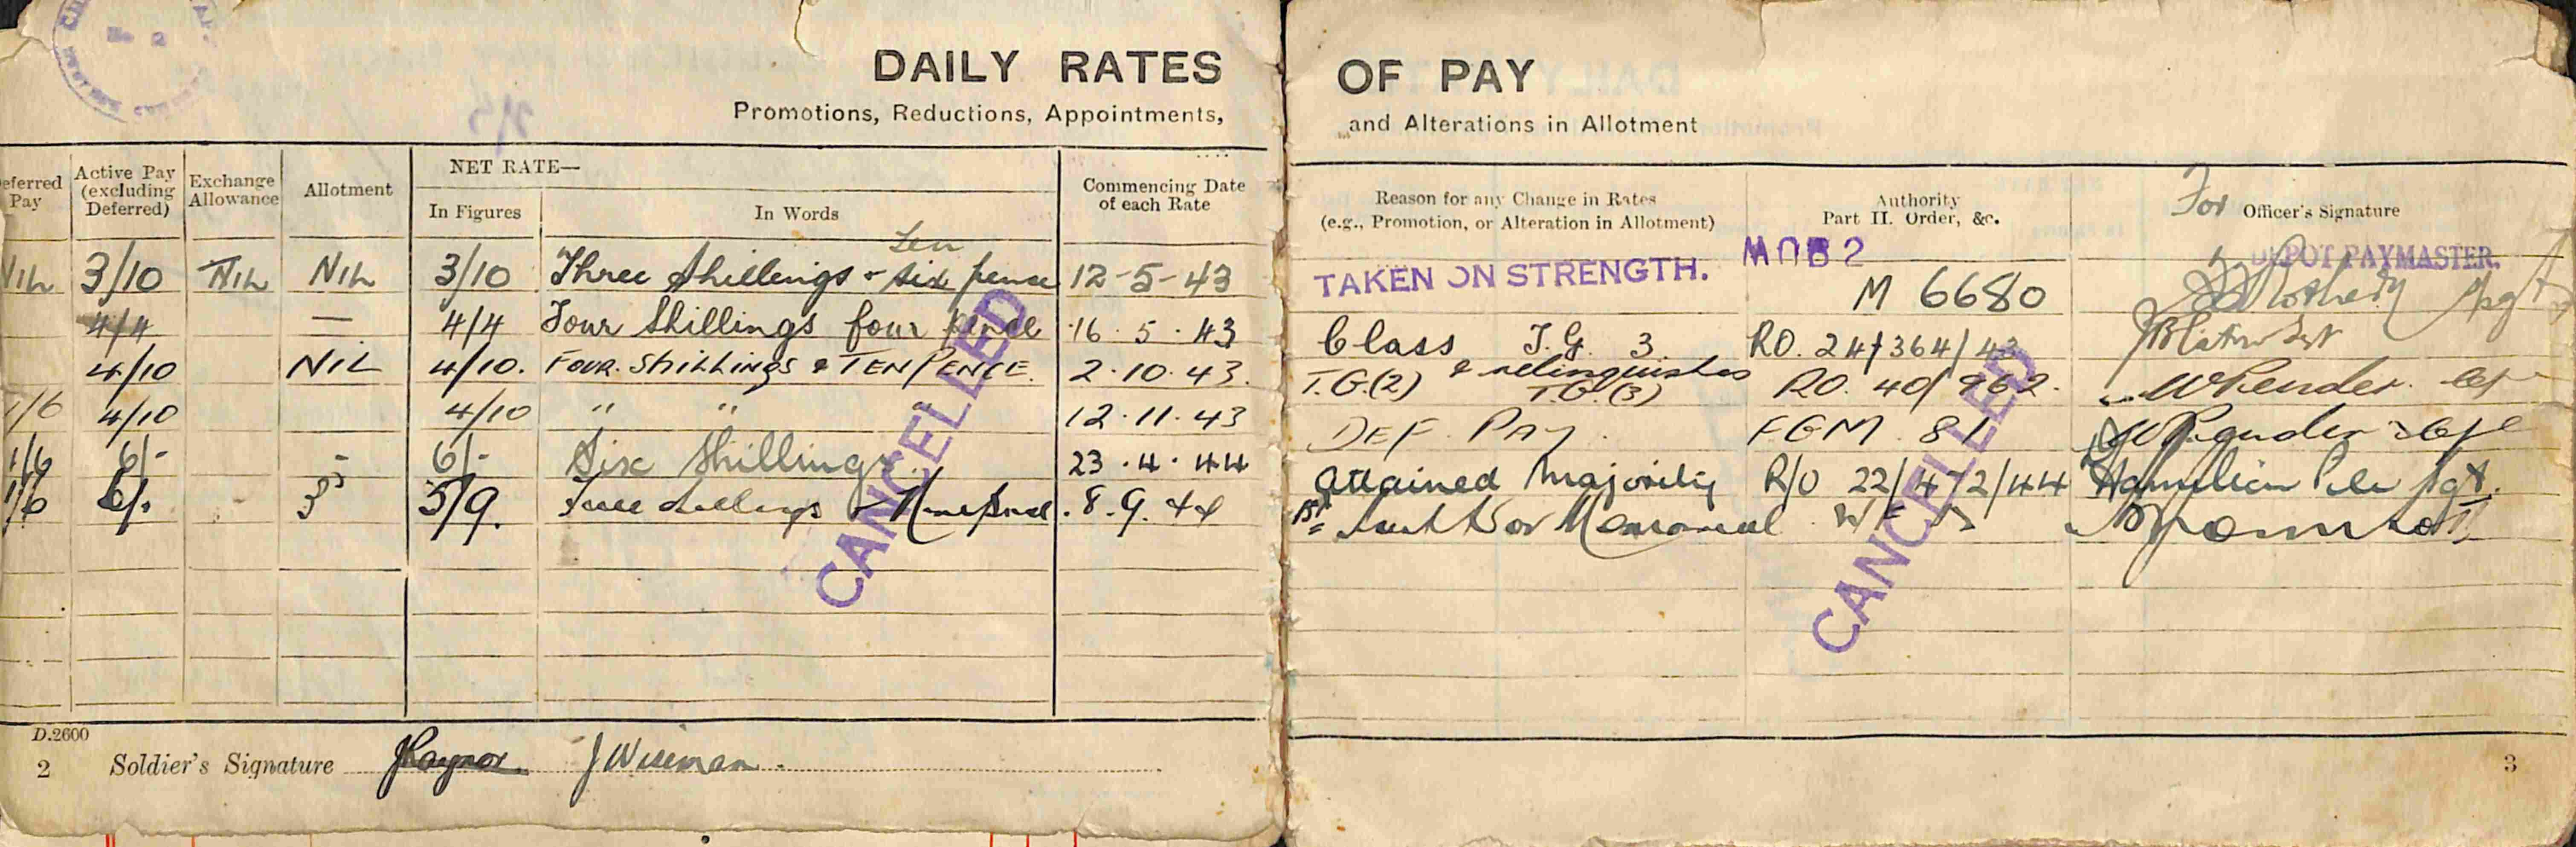 No 2
DAILY RATES OF PAY
Promotions, Reductions, Appointments, and Alterations in Allotment
eferred Pay
Active Pay (excluding Deferred)
Exchange Allowance
Allotment
NET RATE—
In Figures
In Words
Commencing Date of each Rate
Reason for any Change in Rates (e.g., Promotion, or Alteration in Allotment)
Authority Part II. Order, &c.
For Officer's Signature
Ten
MOB 2
DEPOT PAYMASTER.
NIL 3/10 NIL NIL 3/10 Three Shillings & six pence 12-5-43 TAKEN ON STRENGTH. M 6680
4/4 — 4/4 Four Shillings four pence 16.5.43 Class T.G. 3. RO. 24/364/43
4/10 NIL 4/10. FOUR. SHILLINGS & TEN PENCE. 2.10.43. T.G.(2) & relinquishes T.G.(3) RO. 40/962.
1/6 4/10 4/10 " " " 12.11.43 DEF. PAY. FGM. 81
1/6 6/- - 6/- Six Shillings. 23.4.44 attained majority R/O 22/472/44
1/6 6/. - 3 5/9. 8.9.44 1st
CANCELLED
CANCELLED
D.2600
2 Soldier's Signature JRaynor. J Wiseman.
3